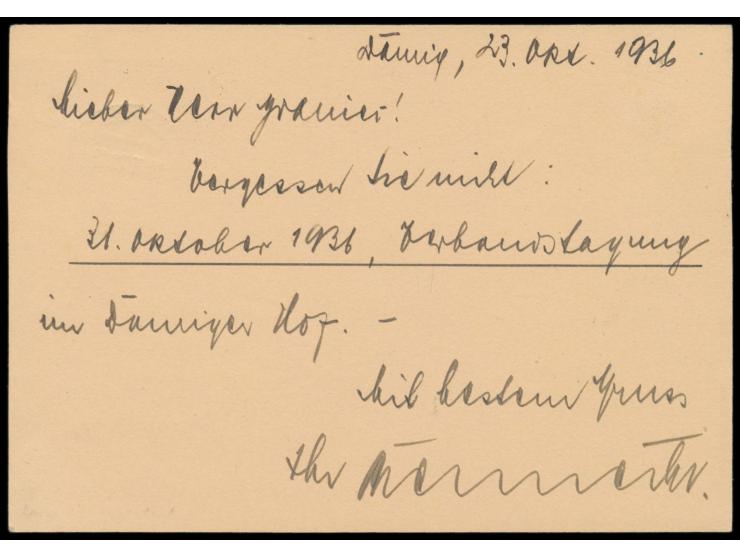 Danzig, 23. Okt. 1936.
Lieber Herr Granier!
Vergessen Sie nicht:
31. Oktober 1936, Verbandstagung
im Danziger Hof. —
Mit bestem Gruss
Ihr